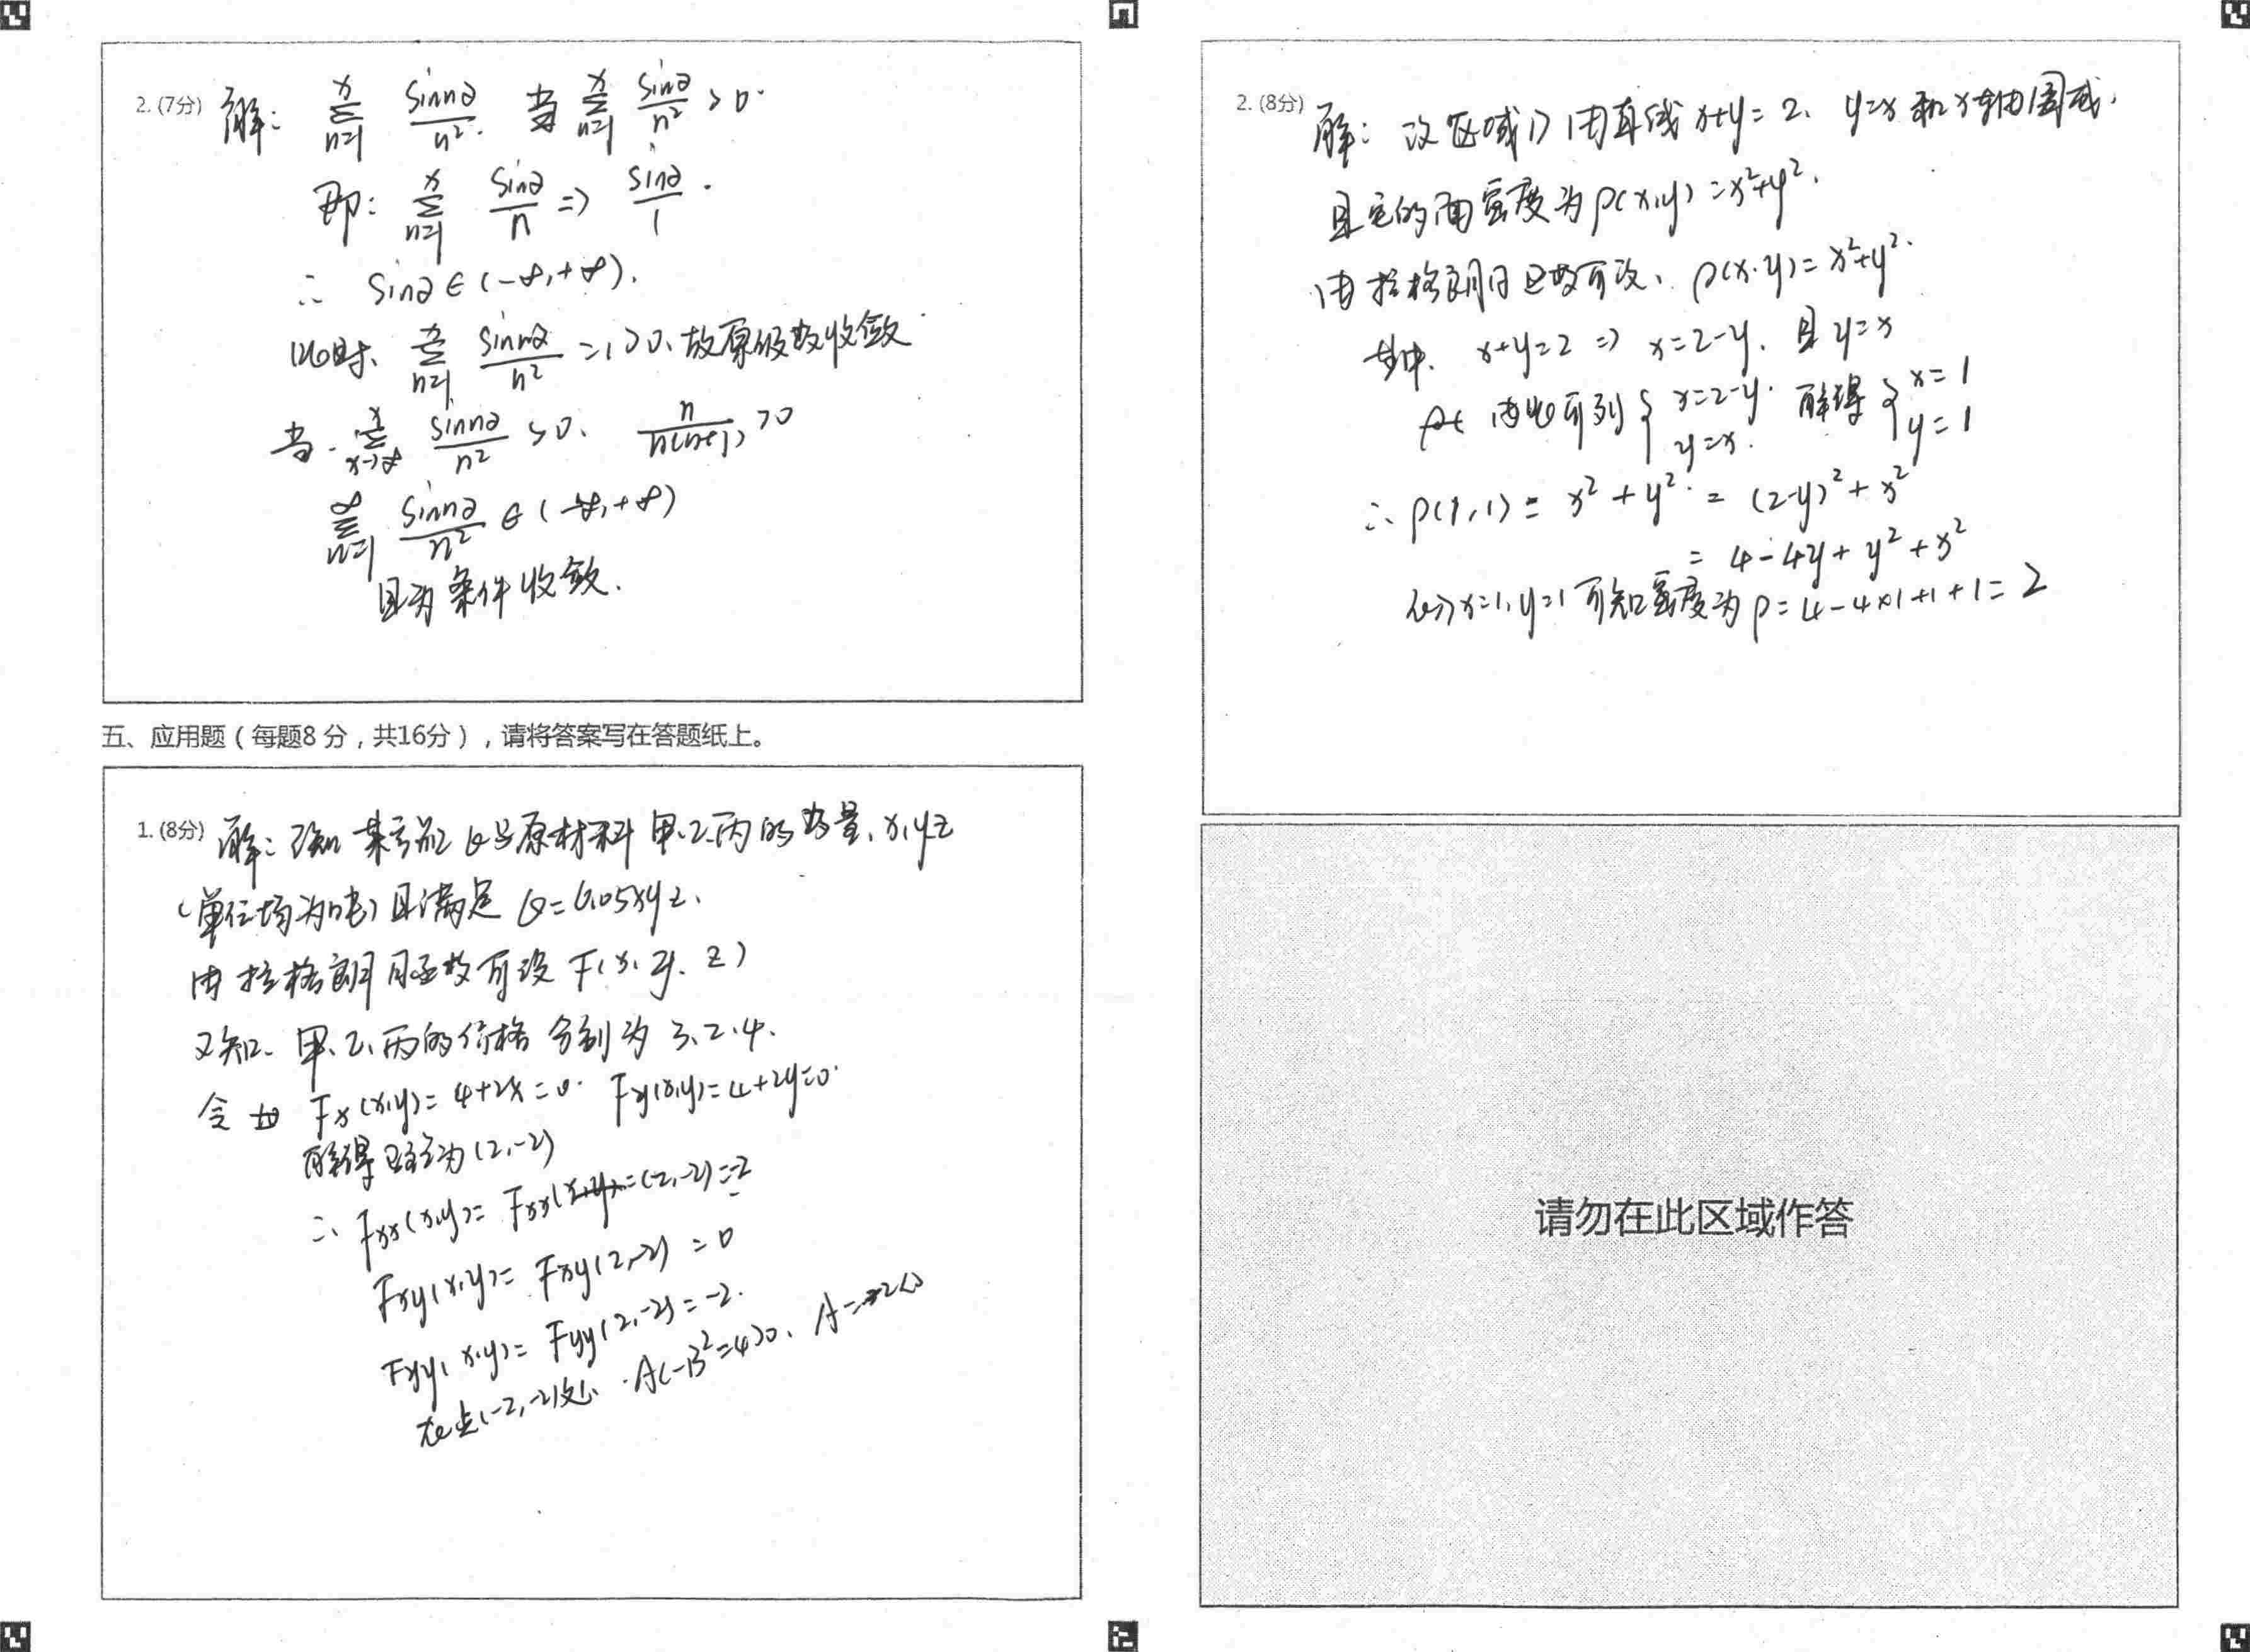 2. (7分) 解: ∑n=1 sinn∂/n². 当 ∑n=1 sin∂/n² >0.
即: ∑n=1 sin∂/n => sin∂/1.
∴ sin∂∈(-∞,+∞).
此时、∑n=1 sinn∂/n² =1>0、故原级数收敛
当 ∑x→∞ sinn∂/n² >0、 n/n(n+1) >0
∞∑n=1 sinn∂/n² ∈(-∞,+∞)
且为条件收敛.
五、应用题（每题8 分，共16分），请将答案写在答题纸上。
1. (8分) 解: 已知 某产品 Q与原材料 甲、乙、丙的数量、x,y,z
(单位均为吨) 且满足 Q=0.05xyz.
由拉格朗日函数可设 F(x、y、z)
又知、甲、乙、丙的价格 分别为 3、2、4.
令 Fx(x,y)=4+2x=0. Fy(x,y)=4+2y=0.
解得驻点为(2,-2)
∴ Fxx(x,y)= Fxx =(2,-2)=-2
Fxy(x,y)= Fxy(2,-2)=0
Fyy(x,y)= Fyy(2,-2)=-2.
在点(-2,-2)处、AC-B²=4>0、A=-2<0
2. (8分) 解: 设区域D由直线x+y=2、y=x和x轴围成.
且它的面密度为ρ(x,y)=x²+y².
由拉格朗日函数可设、ρ(x,y)=x²+y².
其中、x+y=2 => x=2-y、且y=x
由此可列 { x=2-y. y=x. 解得 { x=1 y=1
∴ ρ(1,1)= x²+y² = (2-y)²+x²
= 4-4y+y²+x²
代入x=1,y=1可知密度为ρ=4-4×1+1+1=2
请勿在此区域作答